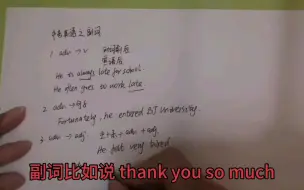 英语之副词
1. adv → v
He is always late for school.
He often goes to work late
2. adv → 句子
Fortunately, he entered BJ University.
3. adv → adj 主+系+adv+adj
He felt very tired
副词比如说 thank you so much